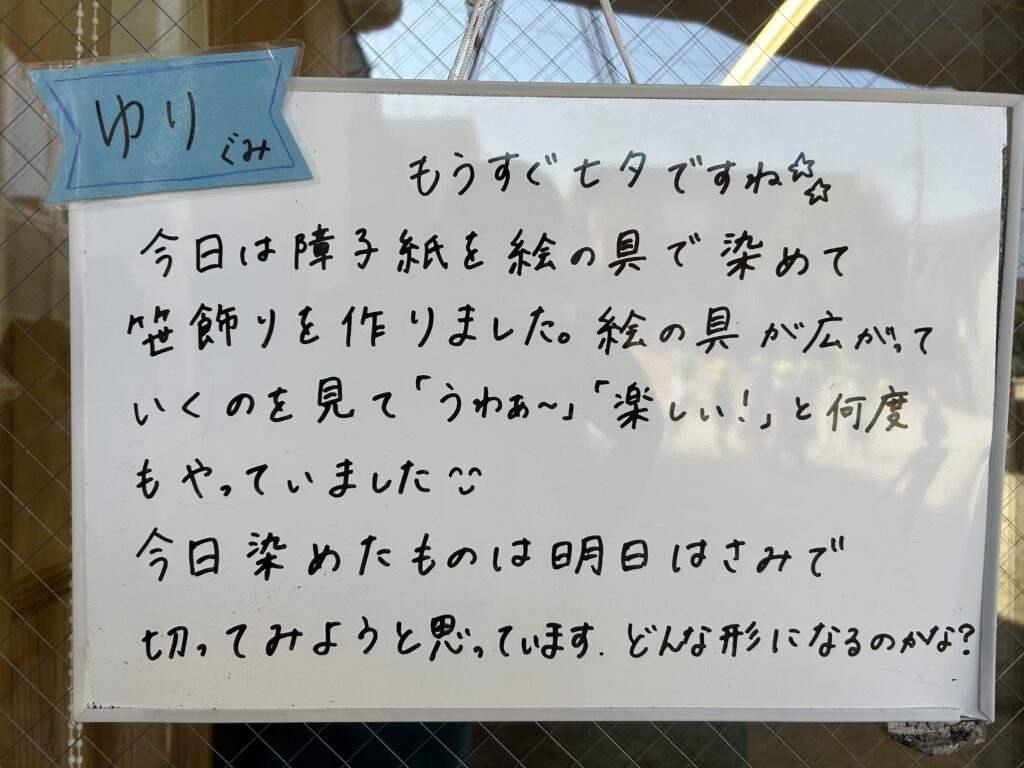 ゆり ぐみ
もうすぐ七夕ですね☆☆
今日は障子紙を絵の具で染めて
笹飾りを作りました。絵の具が広がって
いくのを見て「うわぁ〜」「楽しい!」と何度
もやっていました
今日染めたものは明日はさみで
切ってみようと思っています.どんな形になるのかな?